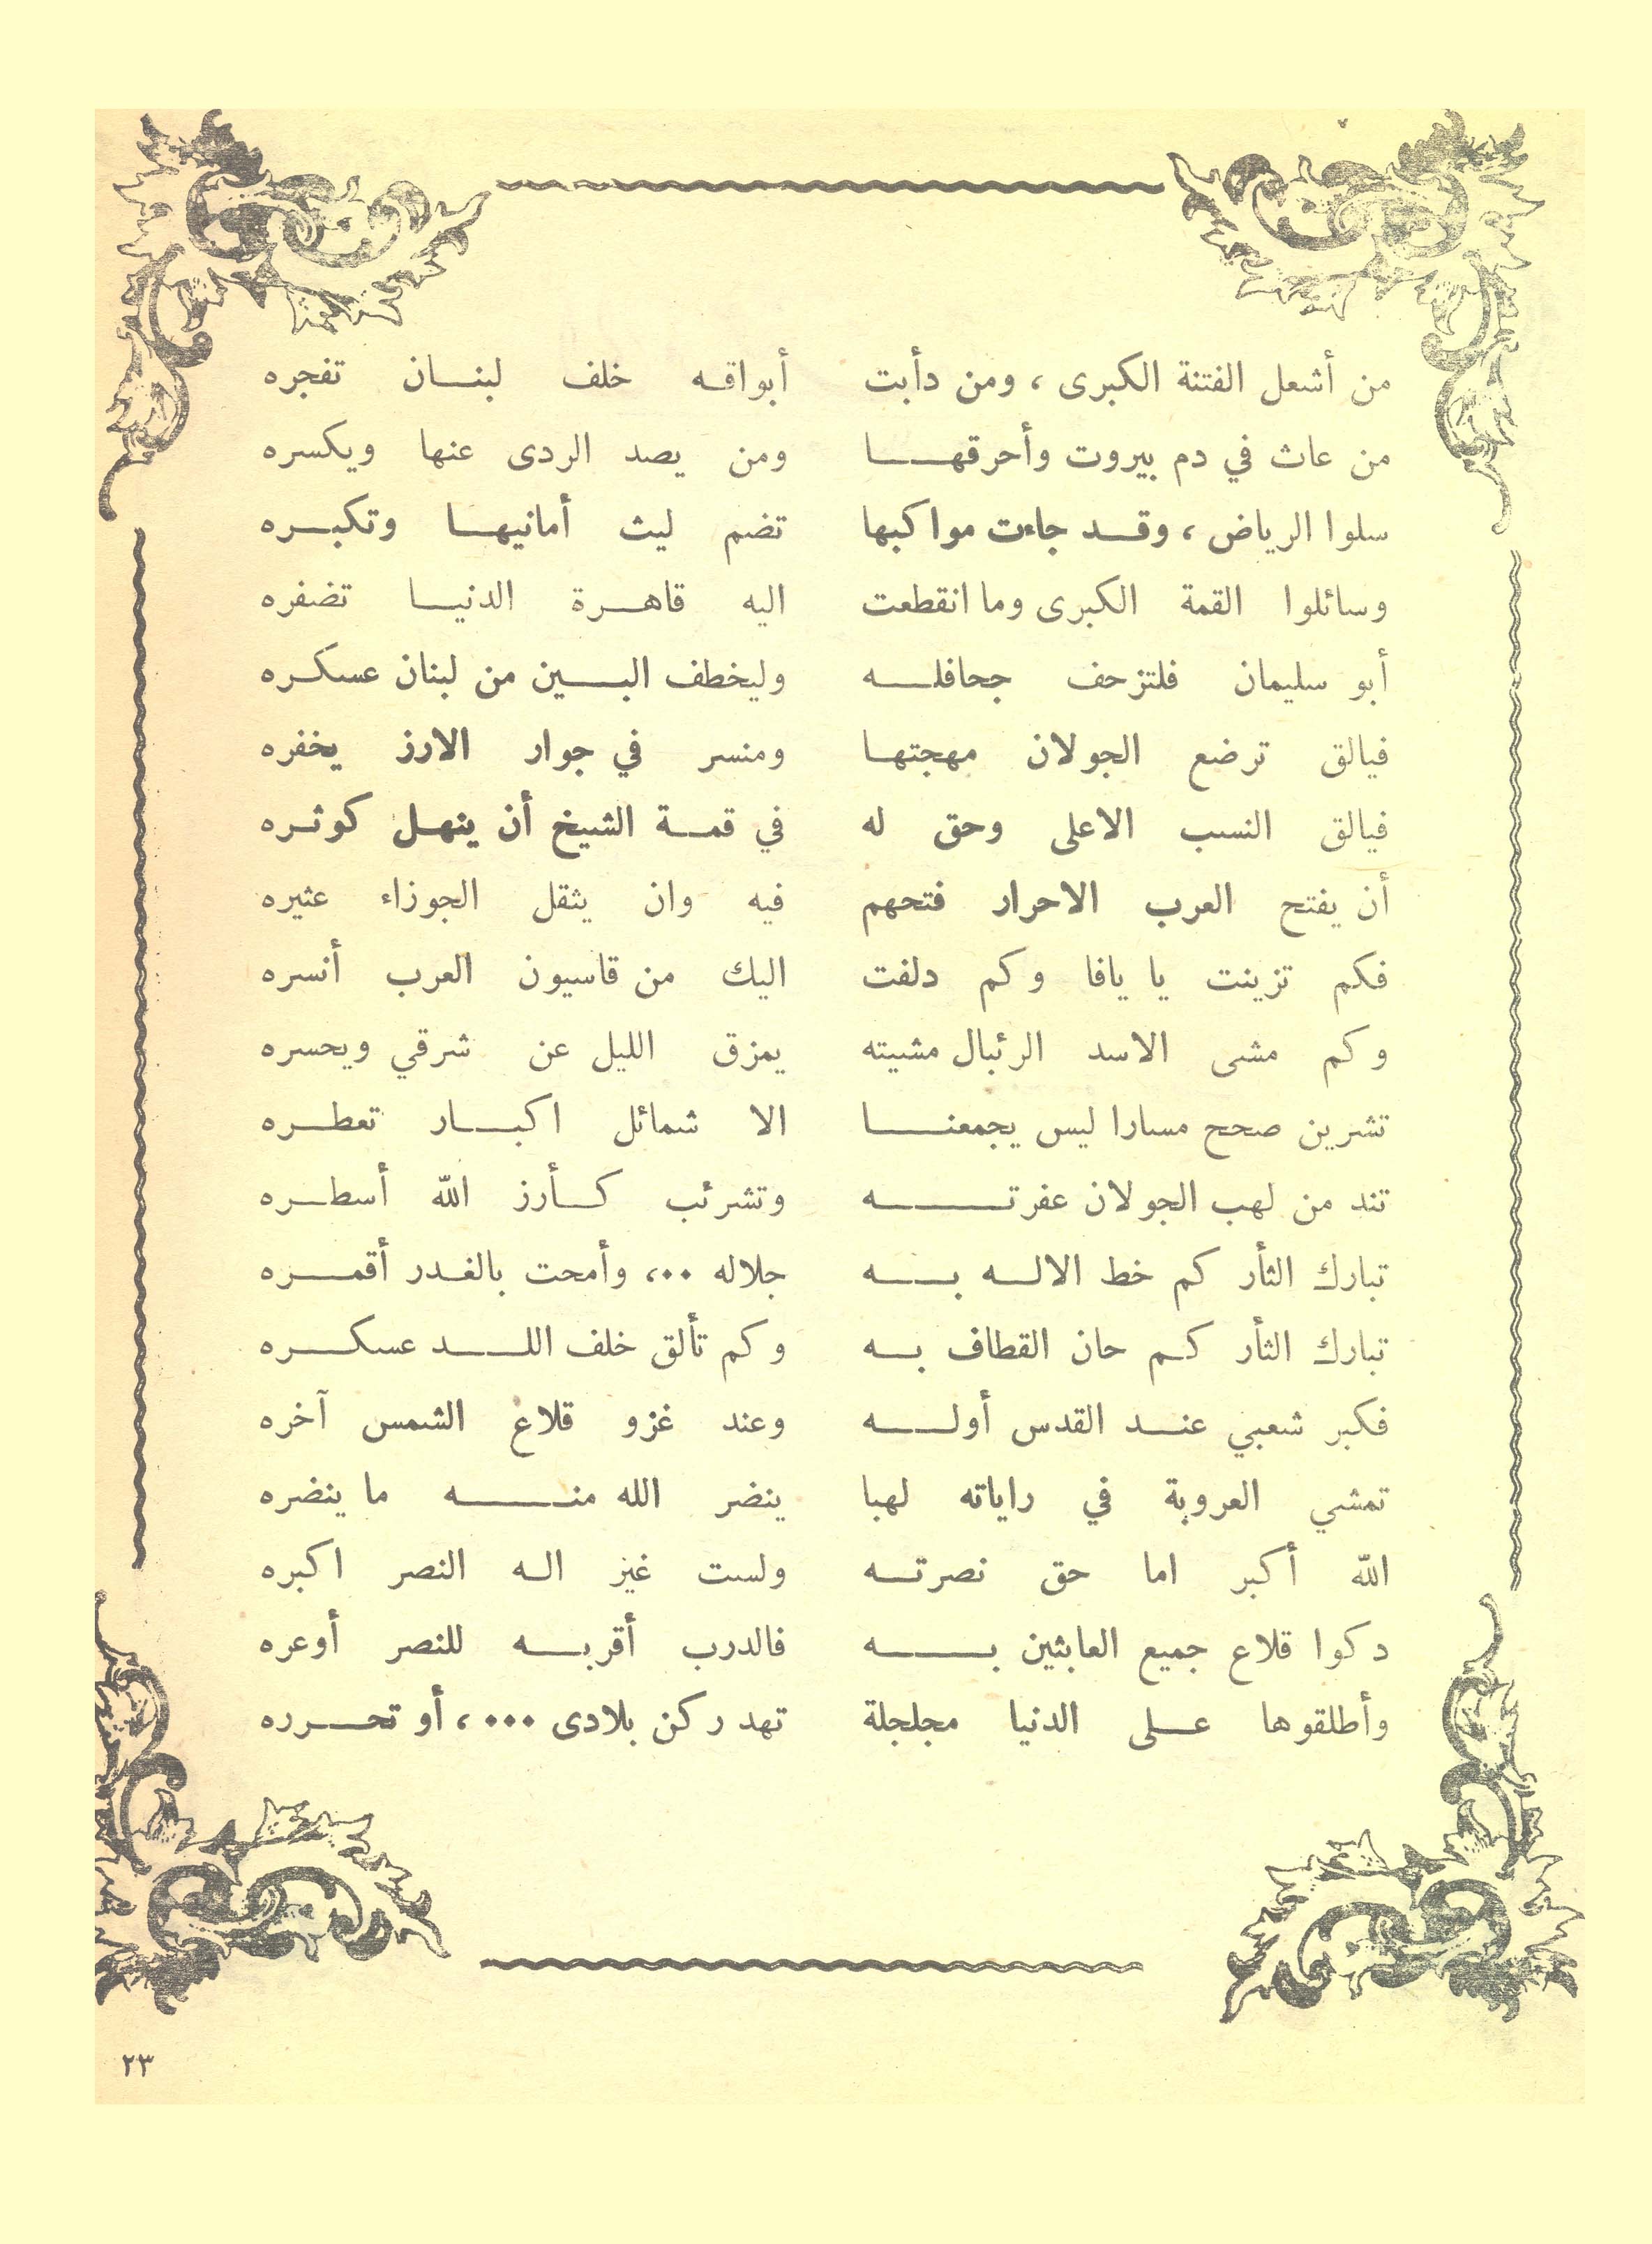 من أشعل الفتنة الكبرى ، ومن دأبت أبواقه خلف لبنان تفجره
من عاث في دم بيروت وأحرقها ومن يصد الردى عنها ويكسره
سلوا الرياض ، وقد جاءت مواكبها تضم ليث أمانيها وتكبره
وسائلوا القمة الكبرى وما انقطعت اليه قاهرة الدنيا تضفره
أبو سليمان فلتزحف جحافله وليخطف البين من لبنان عسكره
فيالق ترضع الجولان مهجتها ومنسر في جوار الارز يخفره
فيالق النسب الاعلى وحق له في قمة الشيخ أن ينهل كوثره
أن يفتح العرب الاحرار فتحهم فيه وان يثقل الجوزاء عثيره
فكم تزينت يا يافا وكم دلفت اليك من قاسيون العرب أنسره
وكم مشى الاسد الرئبال مشيته يمزق الليل عن شرقي ويحسره
تشرين صحح مسارا ليس يجمعنا الا شمائل اكبار تعطره
تند من لهب الجولان عفرته وتشرئب كأرز الله أسطره
تبارك الثأر كم خط الاله به جلاله ٠٠، وأمحت بالغدر أقمره
تبارك الثأر كم حان القطاف به وكم تألق خلف اللد عسكره
فكبر شعبي عند القدس أوله وعند غزو قلاع الشمس آخره
تمشي العروبة في راياته لهبا ينضر الله منه ما ينضره
الله أكبر اما حق نصرته ولست غير اله النصر اكبره
دكوا قلاع جميع العابثين به فالدرب أقربه للنصر أوعره
وأطلقوها على الدنيا مجلجلة تهد ركن بلادى ٠٠٠ ، أو تحرره
٢٣